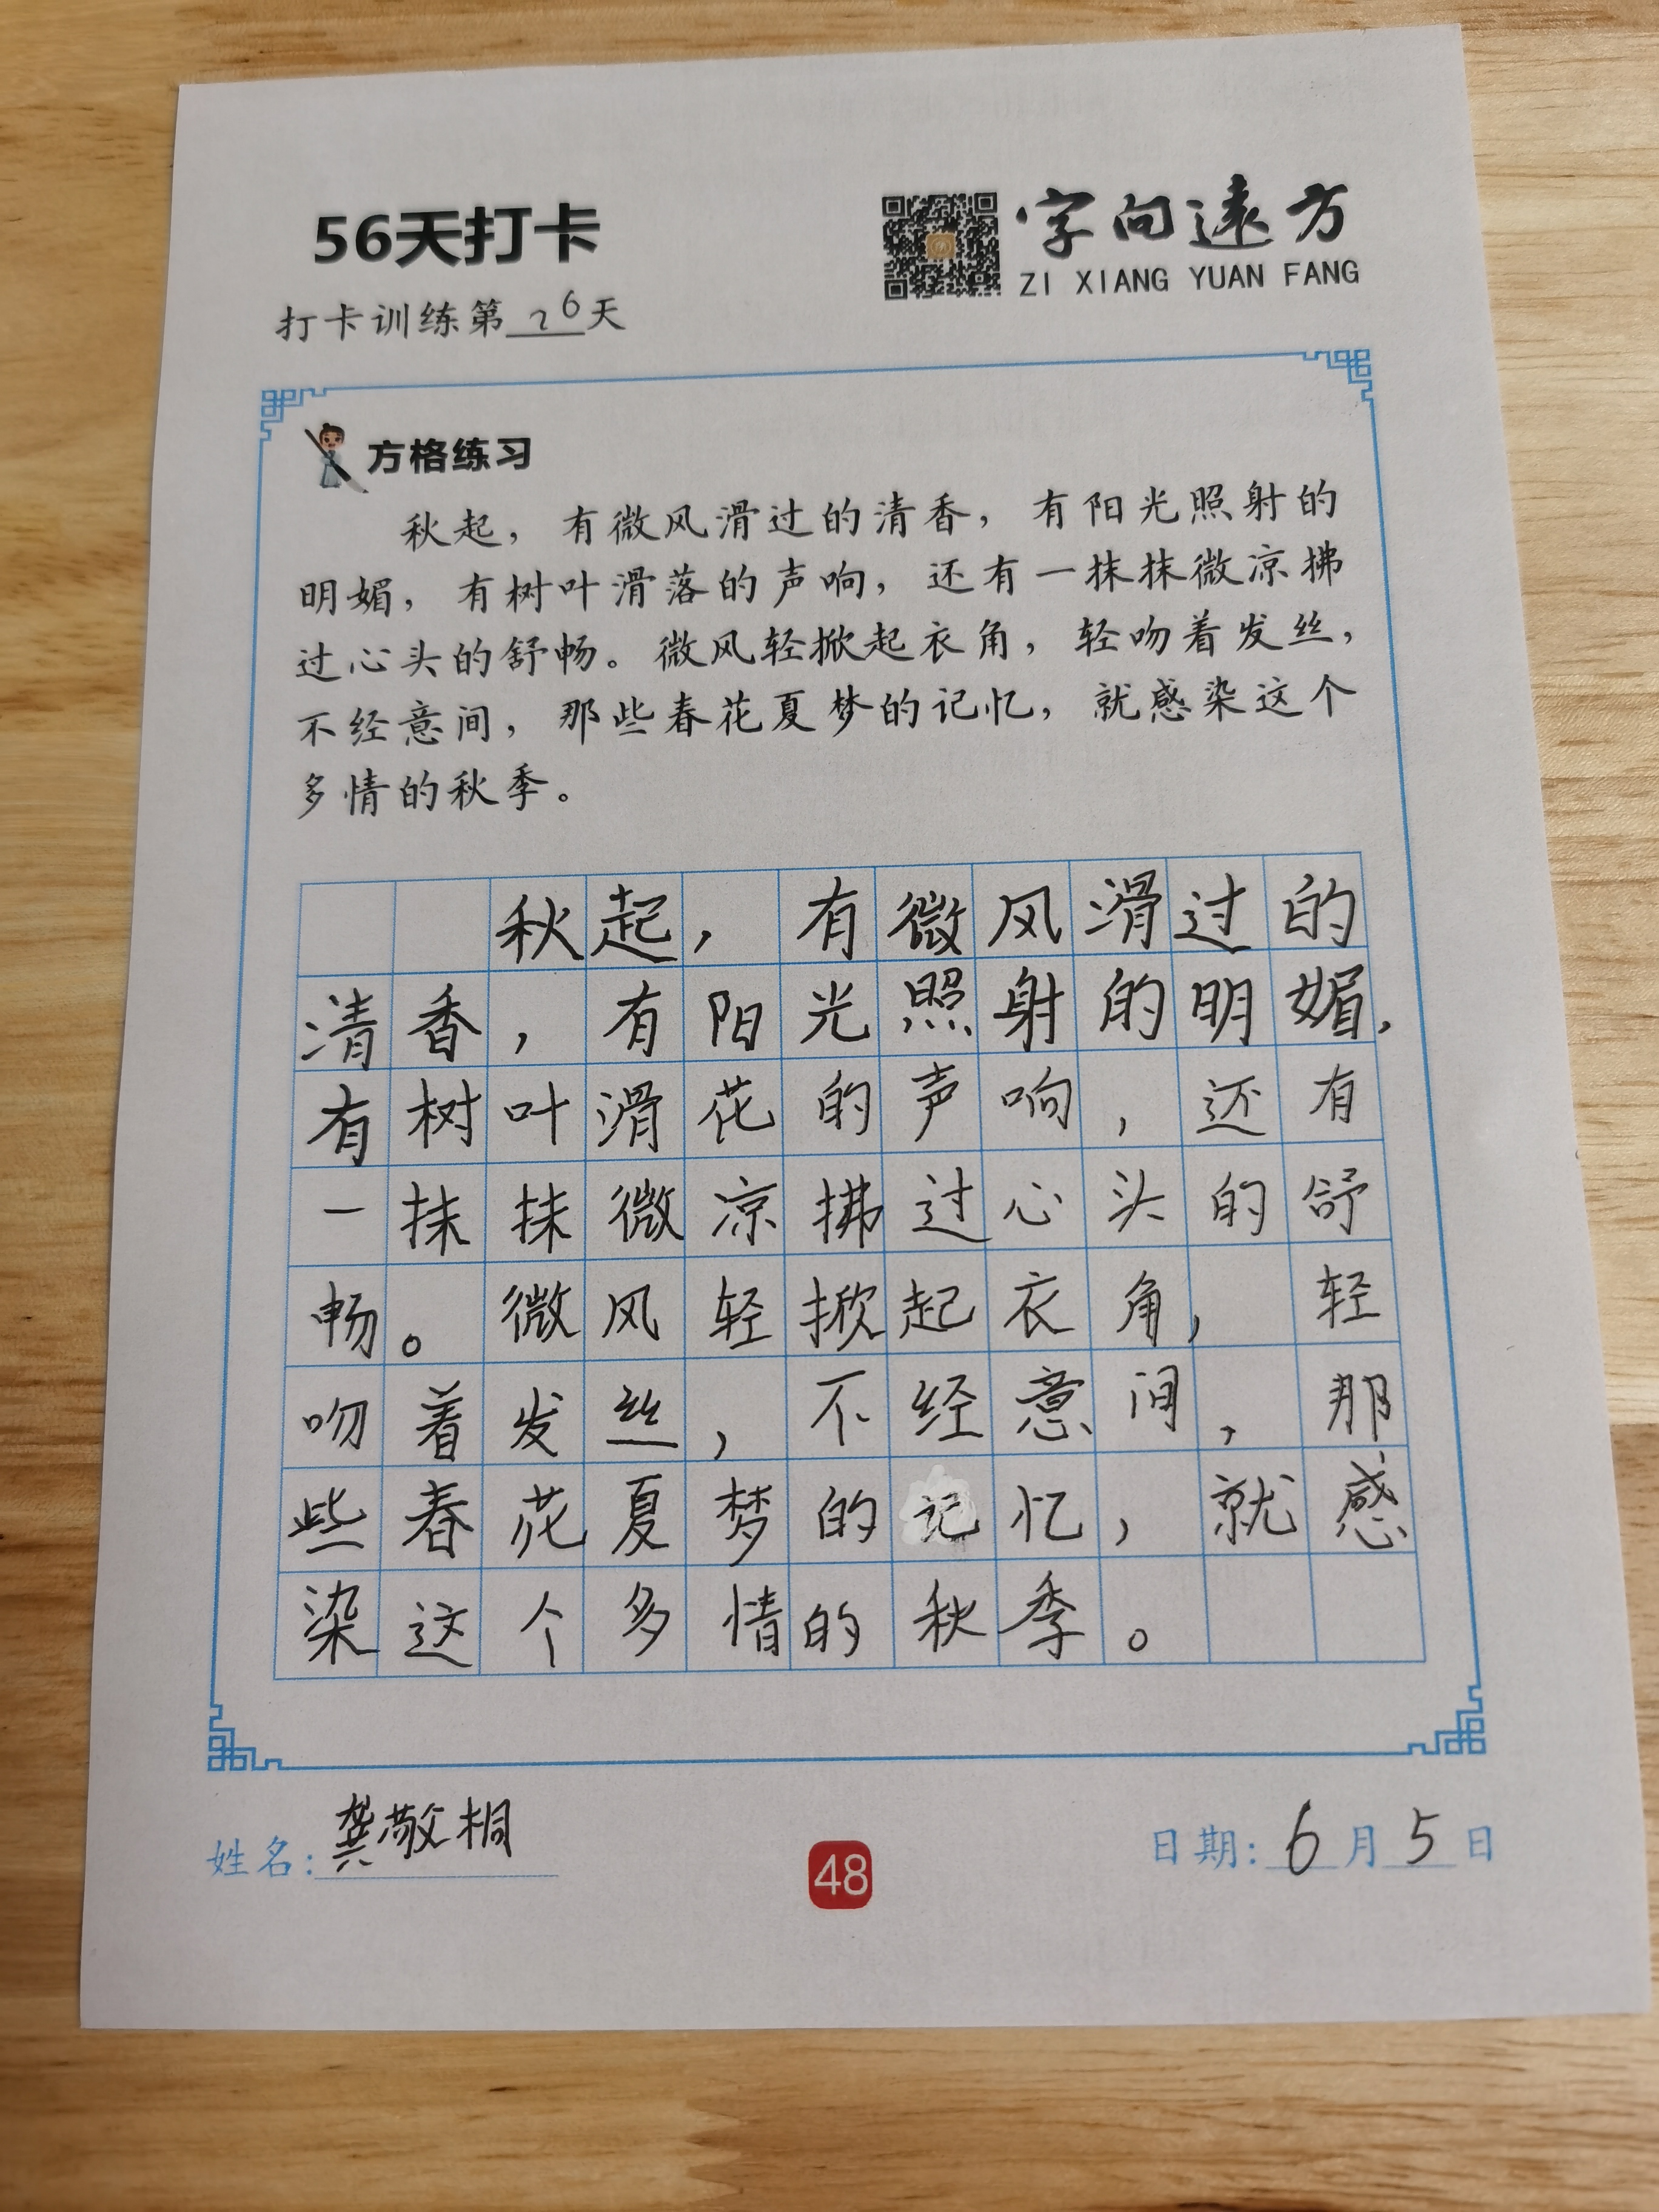 56天打卡
字向远方
ZI XIANG YUAN FANG
打卡训练第26天
方格练习
秋起，有微风滑过的清香，有阳光照射的
明媚，有树叶滑落的声响，还有一抹抹微凉拂
过心头的舒畅。微风轻掀起衣角，轻吻着发丝，
不经意间，那些春花夏梦的记忆，就感染这个
多情的秋季。
秋起，有微风滑过的
清香，有阳光照射的明媚，
有树叶滑花的声响，还有
一抹抹微凉拂过心头的舒
畅。微风轻掀起衣角，轻
吻着发丝，不经意间，那
些春花夏梦的记忆，就感
染这个多情的秋季。
姓名：龚敬桐
48
日期：6月5日